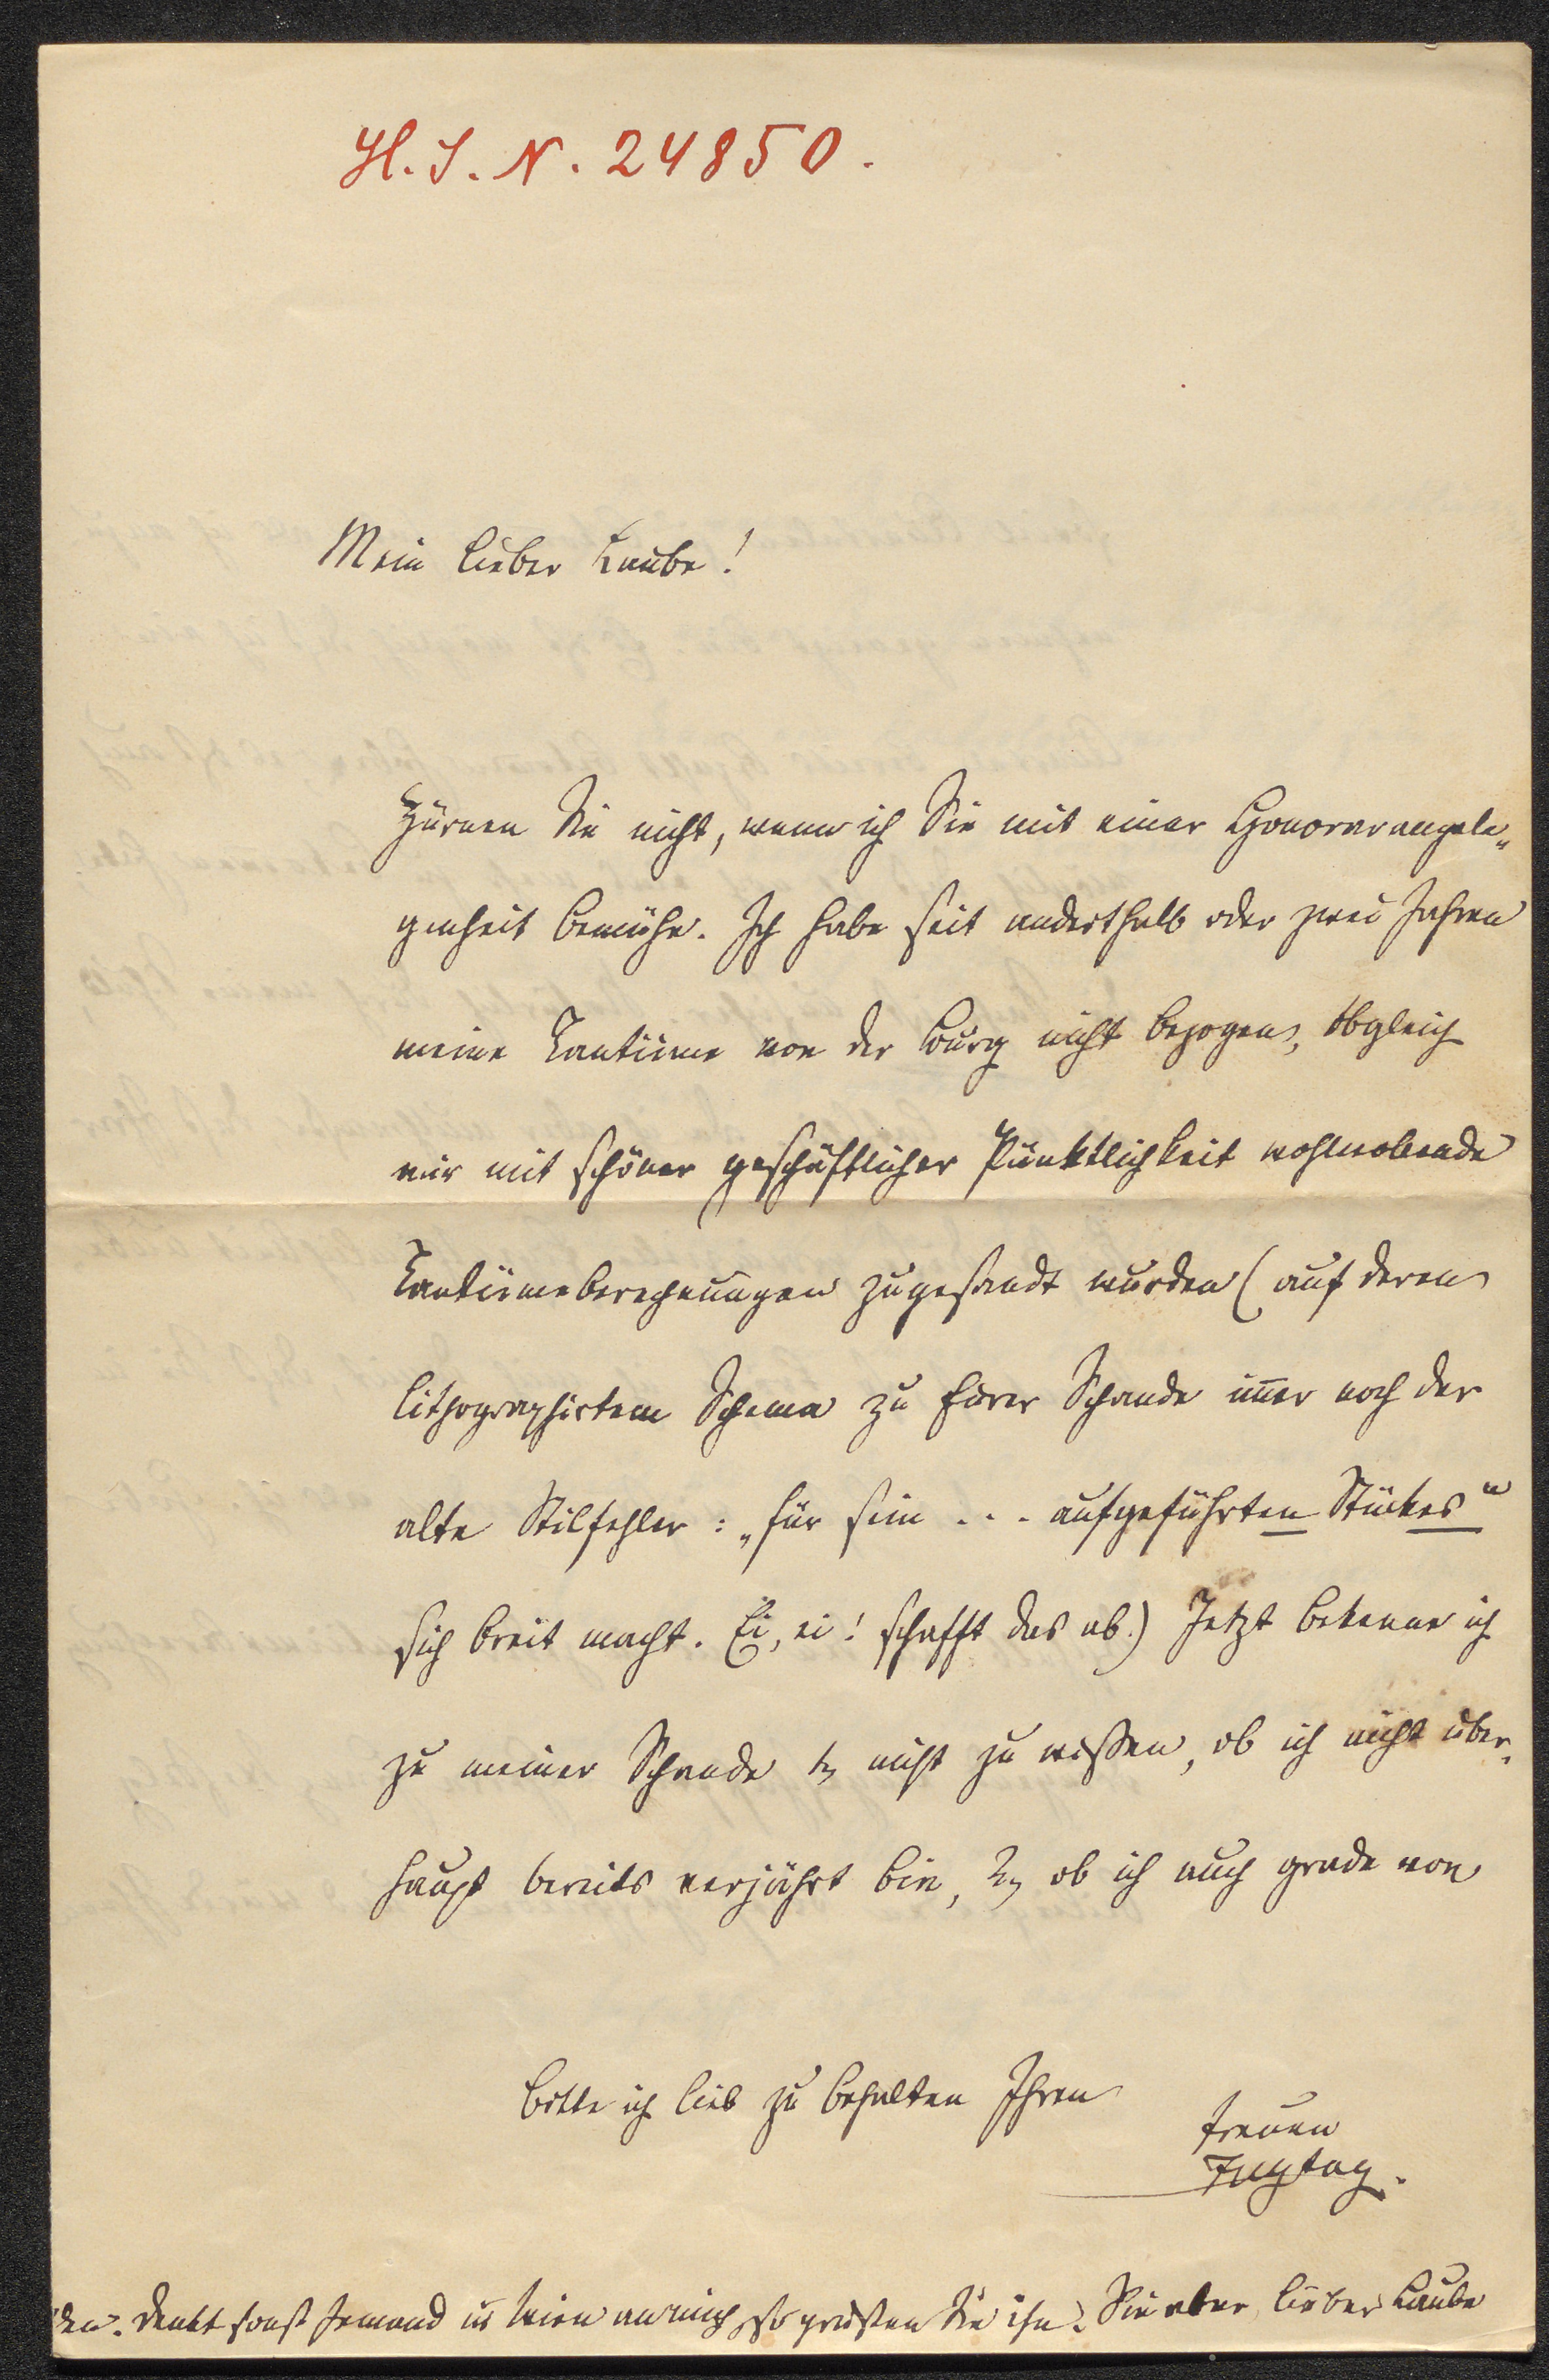 H. I. N. 24850.
Mein lieber Laube!
Zürnen Sie nicht, wenn ich Sie mit einer Honorarangele„
genheit bemühe. Ich habe seit anderthalb oder zwei Jahren
meine Tantième von der Burg nicht bezogen, obgleich
mir mit schöner geschäftlicher Pünktlichkeit wohlwollende
Tantièmeberechnungen zugesandt wurden (auf deren
lithographirtem Schema zu Eurer Schande immer noch der
alte Stilfehler: „für sein . . . aufgeführten Stückes“
sich breit macht. Ei, ei! schafft das ab.) Jetzt bekenne ich
zu meiner Schande nicht zu wißen, ob ich nicht über„
haupt bereits verjährt bin, u ob ich auch grade von
den. Denkt sonst Jemand in Wien an mich, so grüßen Sie ihn. Sie aber, lieber Laube
bitte ich lieb zu behalten Ihren
treuen
Freytag.